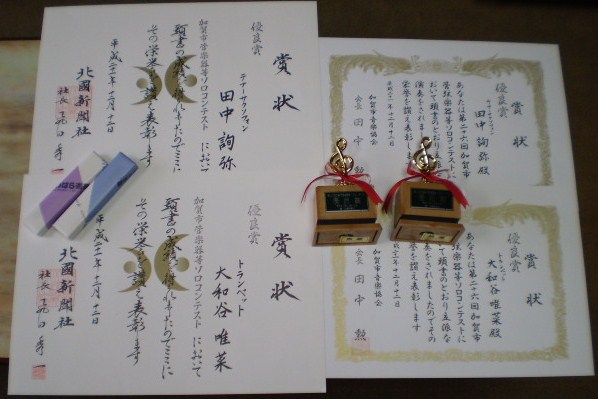 優良賞
賞状
テナーサクソフォン
田中詢弥
加賀市管弦楽器等ソロコンテストにおいて
頭書の成績を収められましたのでここに
その栄誉を讃え表彰します
平成二十二年十二月十二日
北國新聞社
社長
優良賞
賞状
トランペット
大和谷唯菜
加賀市管弦楽器等ソロコンテストにおいて
頭書の成績を収められましたのでここに
その栄誉を讃え表彰します
平成二十二年十二月十二日
北國新聞社
社長
賞状
優良賞
田中詢弥殿
あなたは第二六回加賀市
管弦楽器等ソロコンテストに
おいて頭書のとおり立派な
演奏をされましたのでその
栄誉を讃え表彰します
加賀市音楽協会
会長 田中勲
賞状
優良賞
トランペット
大和谷唯菜殿
あなたは第二六回加賀市
管弦楽器等ソロコンテストに
おいて頭書のとおり立派な
演奏をされましたのでその
栄誉を讃え表彰します
加賀市音楽協会
会長 田中勲